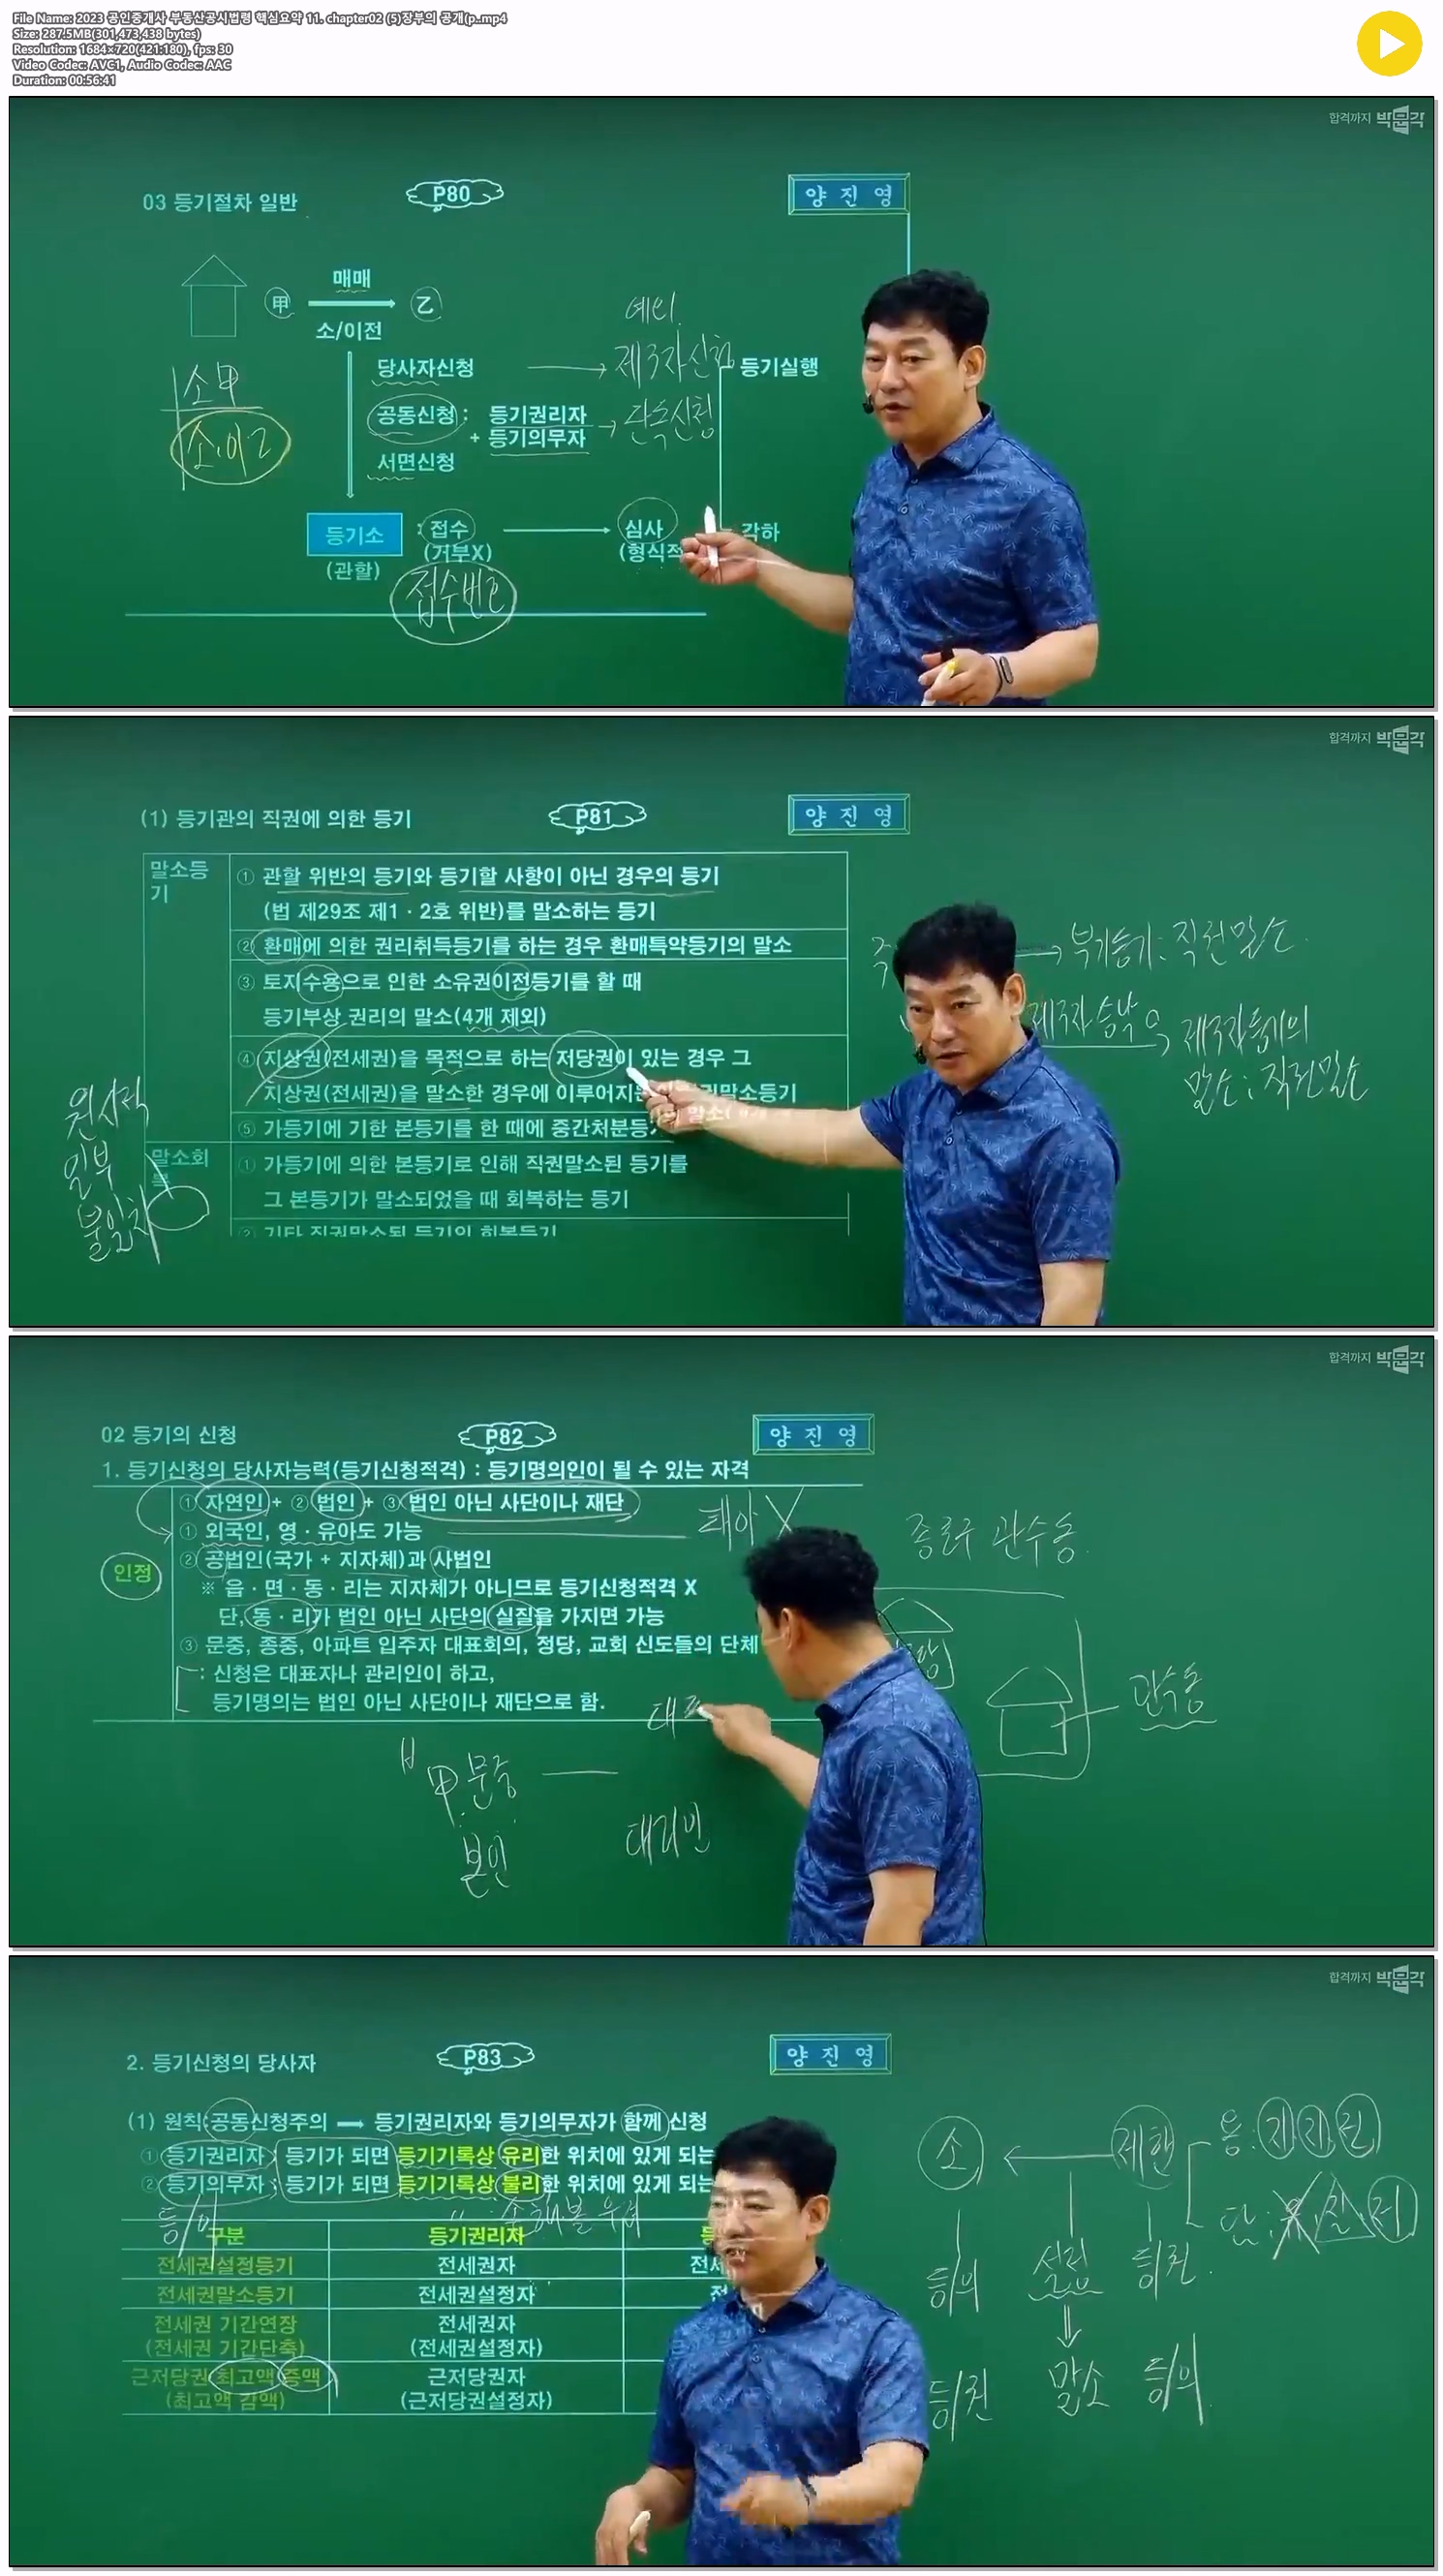 File Name: 2023 공인중개사 부동산공시법령 핵심요약 11. chapter02 (5)장부의 공개(p..mp4
Size: 287.5MB(301,473,438 bytes)
Resolution: 1684×720(421:180), fps: 30
Video Codec: AVC1, Audio Codec: AAC
Duration: 00:56:41
합격까지 박문각
03 등기절차 일반
P80
양 진 영
매매
甲
乙
소/이전
예외
당사자신청
제3자신청
등기실행
소 甲
공동신청 : 등기권리자
+ 등기의무자
단독신청
소.이 乙
서면신청
등기소
: 접수
심사
각하
(관할)
(거부X)
(형식적
접수번호
합격까지 박문각
(1) 등기관의 직권에 의한 등기
P81
양 진 영
말소등기
① 관할 위반의 등기와 등기할 사항이 아닌 경우의 등기
(법 제29조 제1 · 2호 위반)를 말소하는 등기
② 환매에 의한 권리취득등기를 하는 경우 환매특약등기의 말소
③ 토지수용으로 인한 소유권이전등기를 할 때
등기부상 권리의 말소(4개 제외)
④ 지상권(전세권)을 목적으로 하는 저당권이 있는 경우 그
지상권(전세권)을 말소한 경우에 이루어지는
권말소등기
⑤ 가등기에 기한 본등기를 한 때에 중간처분등기
말소회복
① 가등기에 의한 본등기로 인해 직권말소된 등기를
그 본등기가 말소되었을 때 회복하는 등기
② 기타 직권말소된 등기의 회복등기
원시적
일부
불일치
부기등기: 직권말소.
제3자승낙
제3자등기의
말소: 직권말소
합격까지 박문각
02 등기의 신청
P82
양 진 영
1. 등기신청의 당사자능력(등기신청적격) : 등기명의인이 될 수 있는 자격
인정
① 자연인 + ② 법인 + ③ 법인 아닌 사단이나 재단
① 외국인, 영 · 유아도 가능
태아 X
② 공법인(국가 + 지자체)과 사법인
※ 읍 · 면 · 동 · 리는 지자체가 아니므로 등기신청적격 X
단, 동 · 리가 법인 아닌 사단의 실질을 가지면 가능
③ 문중, 종중, 아파트 입주자 대표회의, 정당, 교회 신도들의 단체
: 신청은 대표자나 관리인이 하고,
등기명의는 법인 아닌 사단이나 재단으로 함.
종로구 관수동
관수동
甲 문중
대표
본인
대리인
합격까지 박문각
2. 등기신청의 당사자
P83
양 진 영
(1) 원칙:공동신청주의 ➡ 등기권리자와 등기의무자가 함께 신청
① 등기권리자 : 등기가 되면 등기기록상 유리한 위치에 있게 되는
② 등기의무자 : 등기가 되면 등기기록상 불리한 위치에 있게 되는
손해볼 우려
구분
등기권리자
전세권설정등기
전세권자
전세
전세권말소등기
전세권설정자
전
전세권 기간연장
(전세권 기간단축)
전세권자
(전세권설정자)
근저당권 최고액 증액
(최고액 감액)
근저당권자
(근저당권설정자)
소
제한
용: 지 지 전
등/의
설정
등/권
등/권
말소
등/의